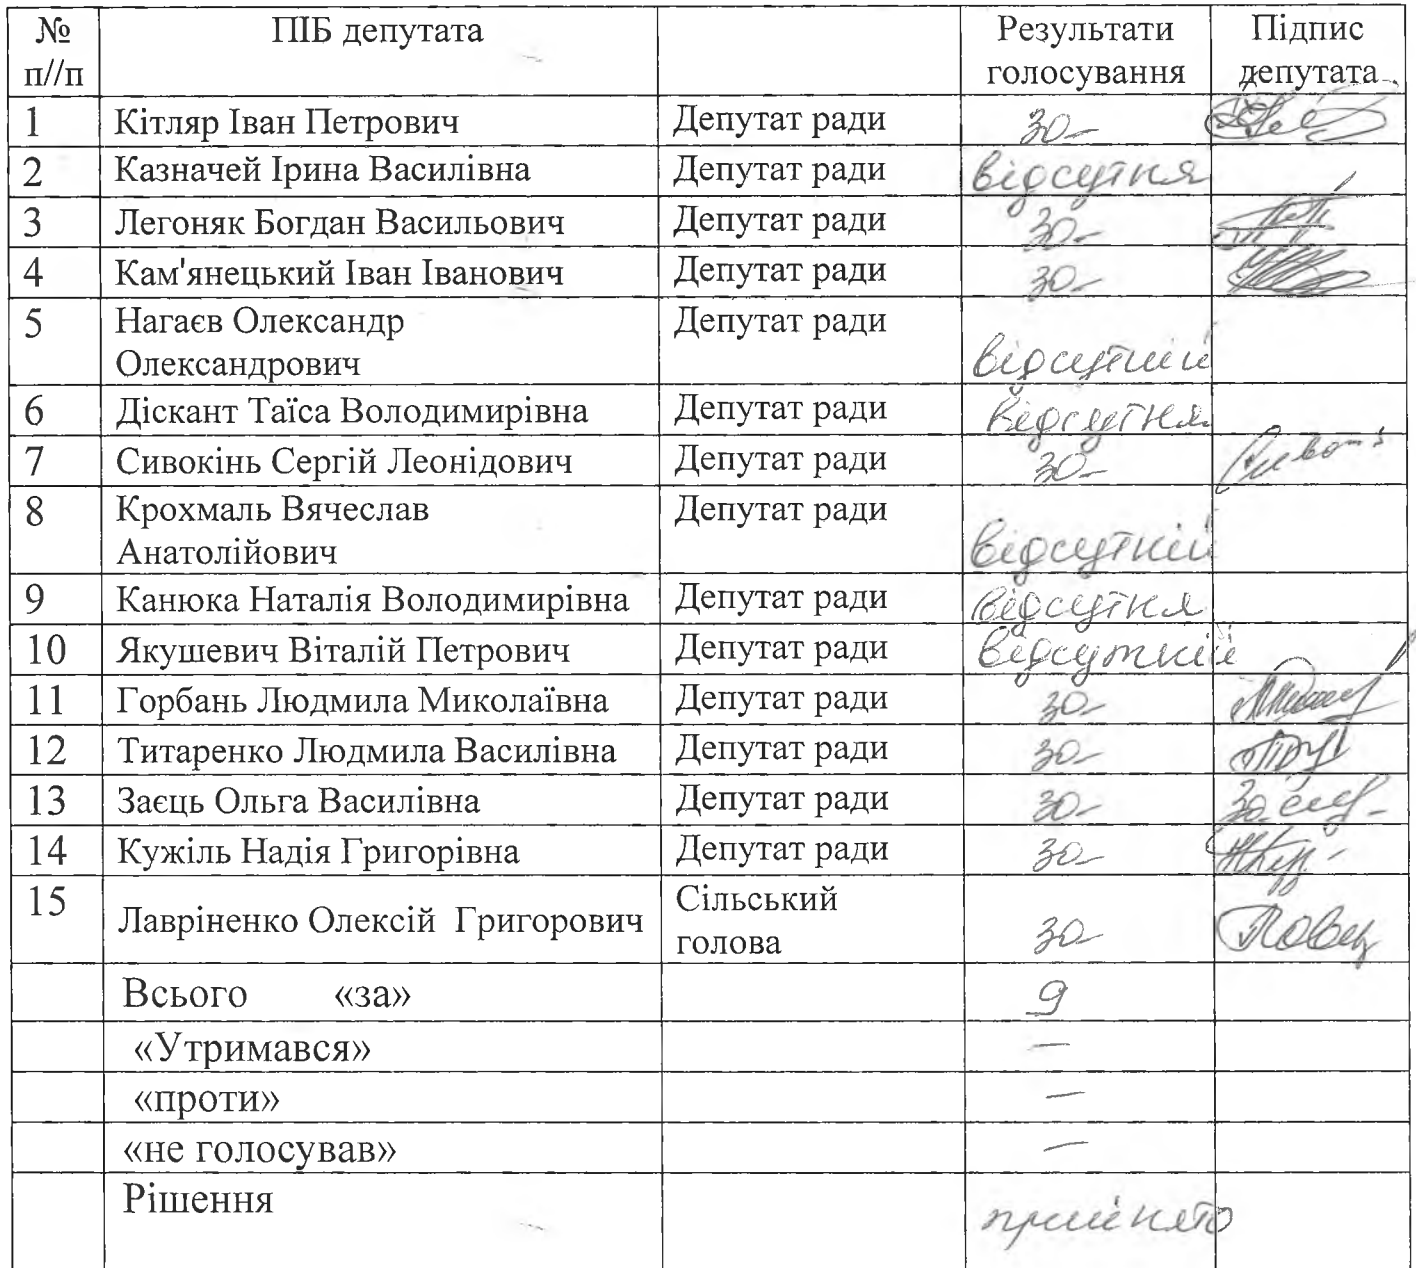 № п//п ПІБ депутата Результати голосування Підпис депутата
1 Кітляр Іван Петрович Депутат ради за
2 Казначей Ірина Василівна Депутат ради відсутня
3 Легоняк Богдан Васильович Депутат ради за
4 Кам'янецький Іван Іванович Депутат ради за
5 Нагаєв Олександр Депутат ради
Олександрович відсутній
6 Діскант Таїса Володимирівна Депутат ради відсутня
7 Сивокінь Сергій Леонідович Депутат ради за
8 Крохмаль Вячеслав Депутат ради
Анатолійович відсутній
9 Канюка Наталія Володимирівна Депутат ради відсутня
10 Якушевич Віталій Петрович Депутат ради відсутній
11 Горбань Людмила Миколаївна Депутат ради за
12 Титаренко Людмила Василівна Депутат ради за
13 Заєць Ольга Василівна Депутат ради за
14 Кужіль Надія Григорівна Депутат ради за
15 Лавріненко Олексій Григорович Сільський голова за
Всього «за» 9
«Утримався» —
«проти» —
«не голосував» —
Рішення прийнято